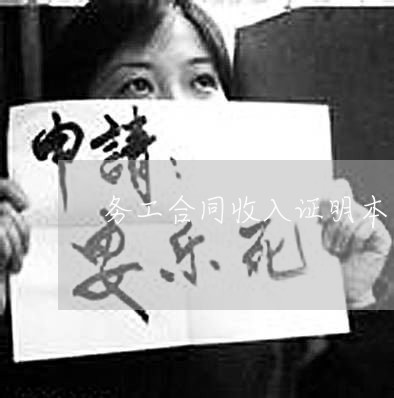 申請：
要乐死
务工合同收入证明本